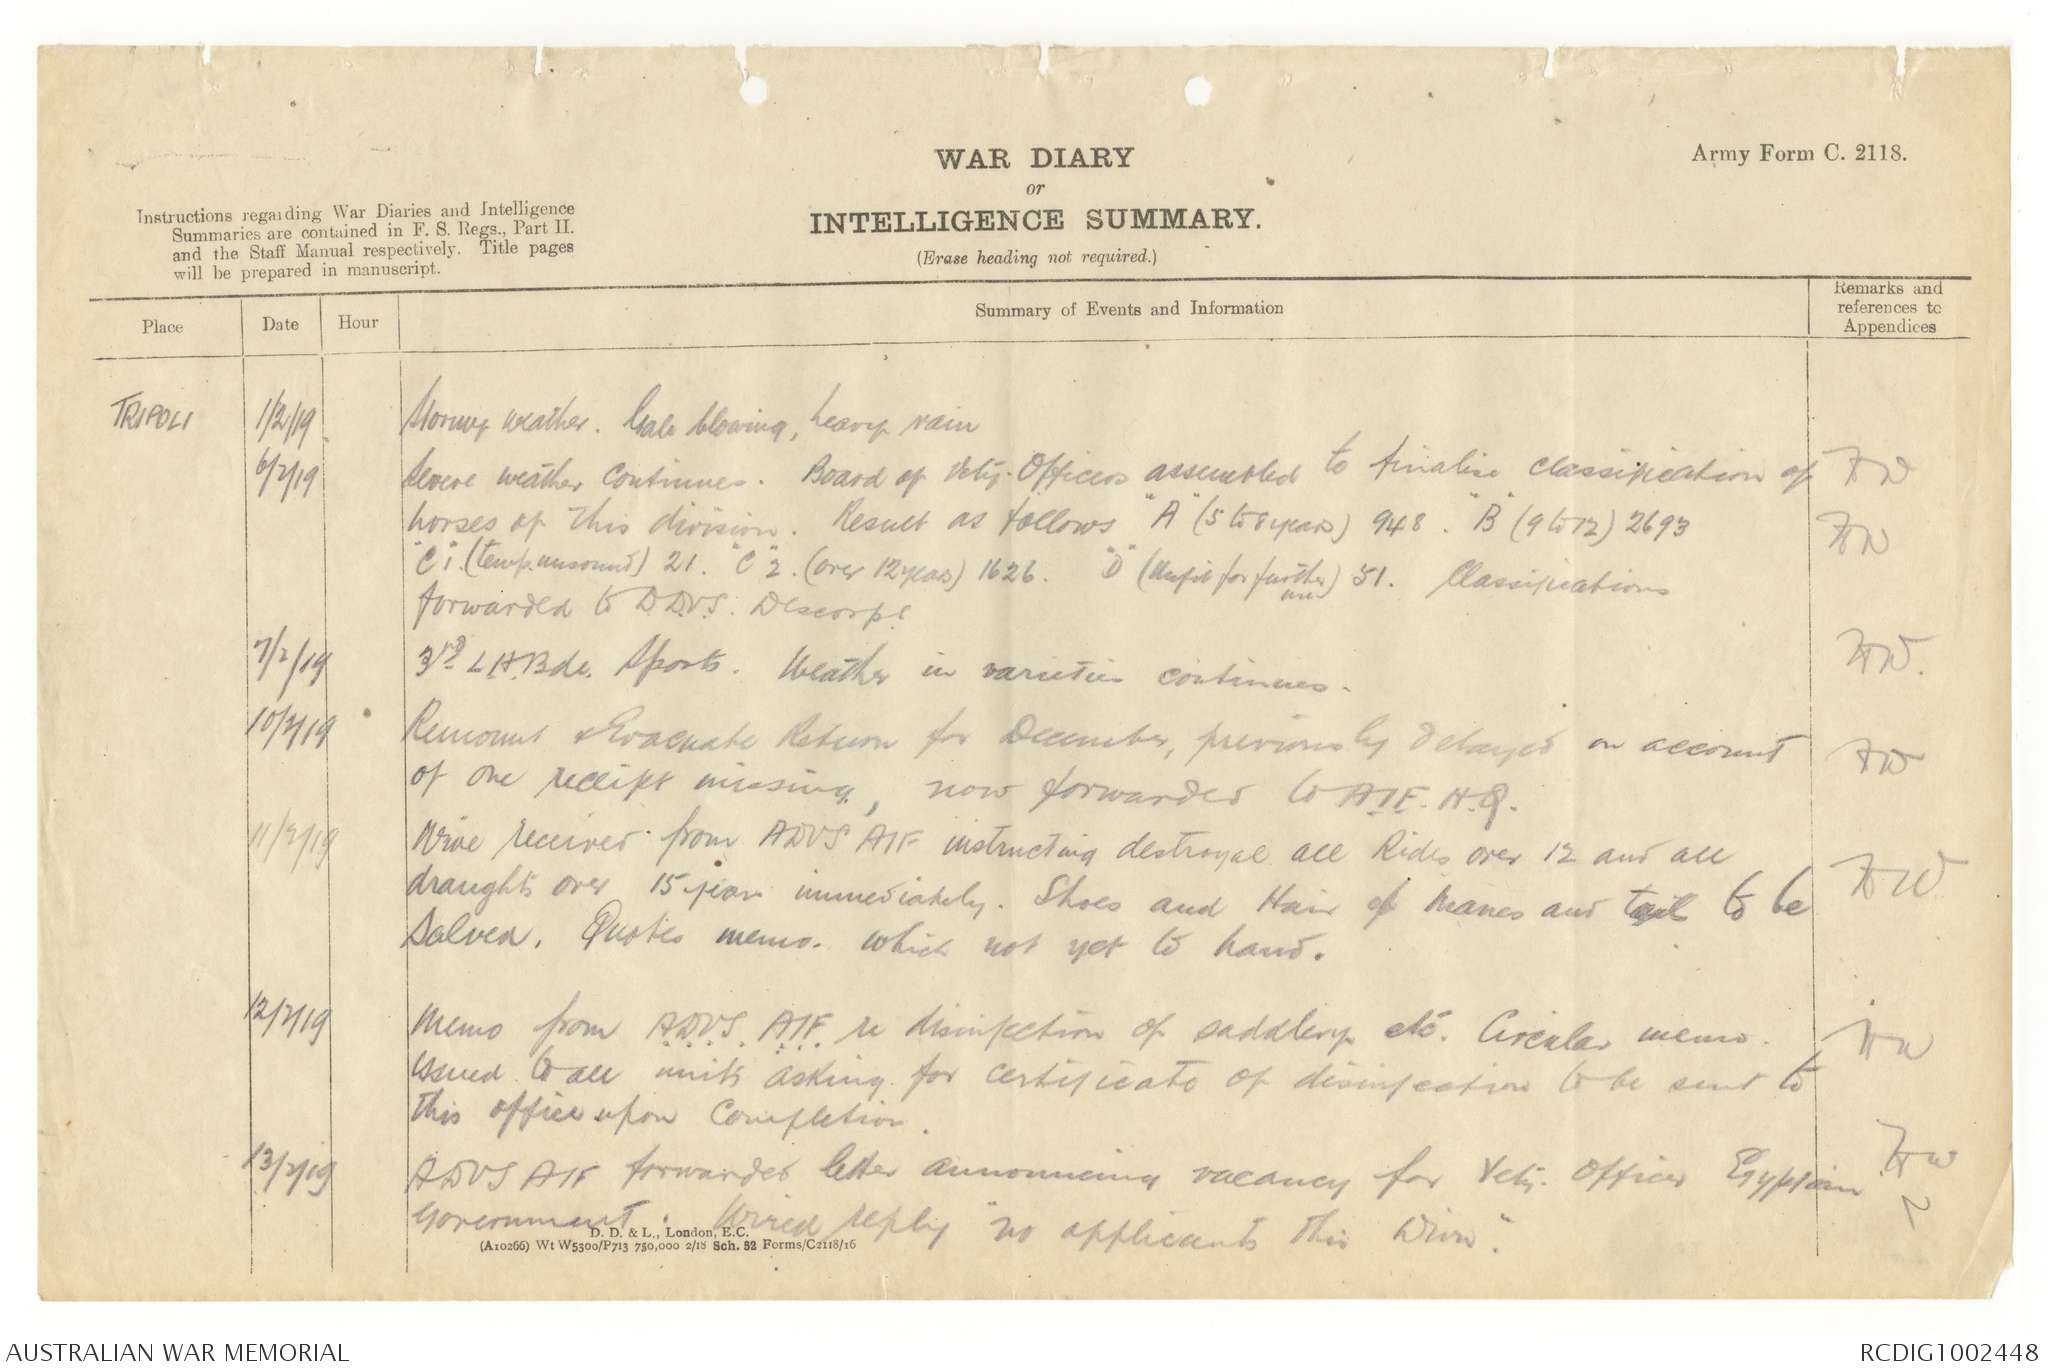 WAR DIARY
or
INTELLIGENCE SUMMARY.
(Erase heading not required.)
Army Form C. 2118.
Instructions regarding War Diaries and Intelligence
Summaries are contained in F. S. Regs., Part II.
and the Staff Manual respectively. Title pages
will be prepared in manuscript.
Place
Date
Hour
Summary of Events and Information
Remarks and
references to
Appendices
TRIPOLI 1/2/19 Stormy weather. Gale blowing, heavy rain
6/2/19 Severe weather continues. Board of Vety. Officers assembled to finalise classification of
horses of this division. Result as follows "A" (5 to 8 years) 948. "B" (9 to 12) 2693
"C"1. (temp. unsound) 21. "C"2. (over 12 years) 1626. "D" (unfit for further use) 51. Classifications
forwarded to D.D.V.S. Descorps
7/2/19 3rd L.H.Bde. Sports. Weather in varieties continues.
10/2/19 Remount & Evacuate Return for December, previously delayed on account
of one receipt missing, now forwarded to A.I.F. H.Q.
11/2/19 Wire received from ADVS AIF instructing destroyal all Rides over 12 and all
draughts over 15 years immediately. Shoes and Hair of Manes and tail to be
Salved. Quotes memo. which not yet to hand.
12/2/19 Memo from A.D.V.S. A.I.F. re disinfection of saddlery etc. Circular memo.
issued to all units asking for certificate of disinfection to be sent to
this office upon completion.
13/2/19 ADVS AIF forwarded letter announcing vacancy for Vety. Officer Egyptian
Government. Wired reply "no applicants this Divn".
D. D. & L., London, E.C.
(A10266) Wt W5300/P713 750,000 2/18 Sch. 52 Forms/C2118/16
AUSTRALIAN WAR MEMORIAL
RCDIG1002448